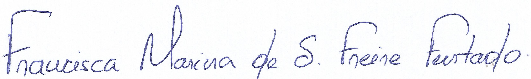 Francisca Marina de S. Freire Furtado.